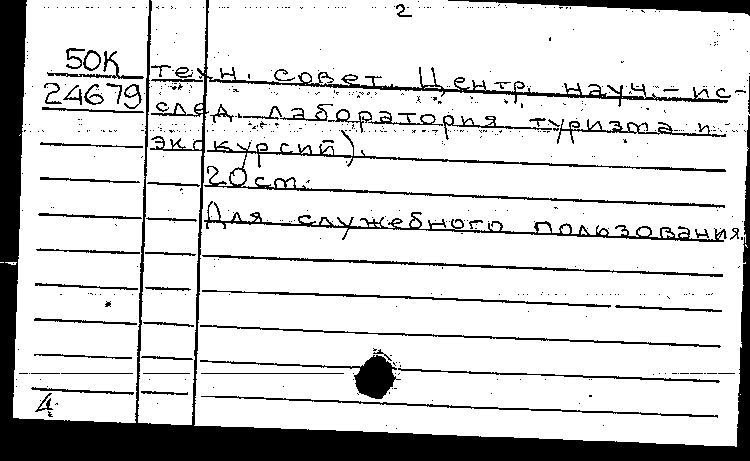 2
50К
24679
техн. совет. Центр. науч.-ис-
след. лаборатория туризма и
экскурсий).
20 см.
Для служебного пользования.
4